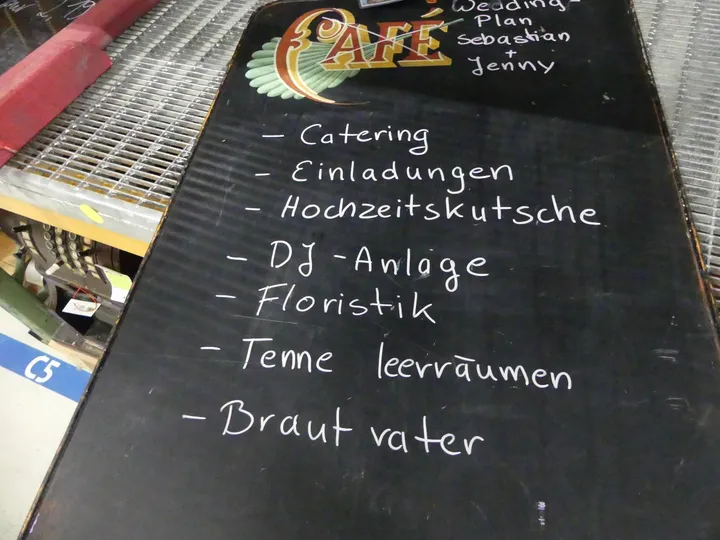 CAFÉ
Wedding-
Plan
Sebastian
+
Jenny
- Catering
- Einladungen
- Hochzeitskutsche
- DJ-Anlage
- Floristik
- Tenne leerräumen
- Brautvater
C5